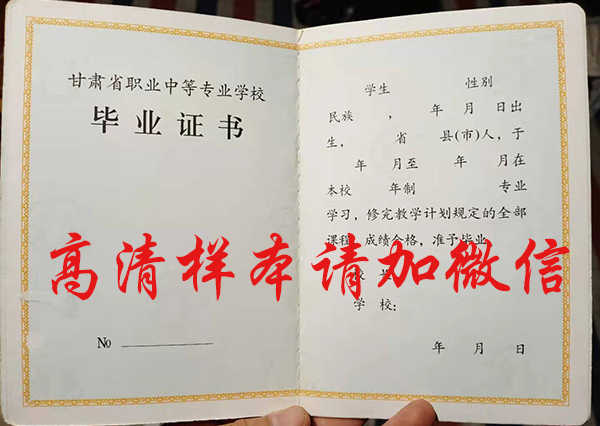 甘肃省职业中等专业学校
毕业证书
No
学生 性别
民族 ， 年 月 日出
生， 省 县(市)人，于
年 月至 年 月在
本校 年制 专业
学习，修完教学计划规定的全部
课程，成绩合格，准予毕业
高清样本请加微信
校
学校：
年 月 日